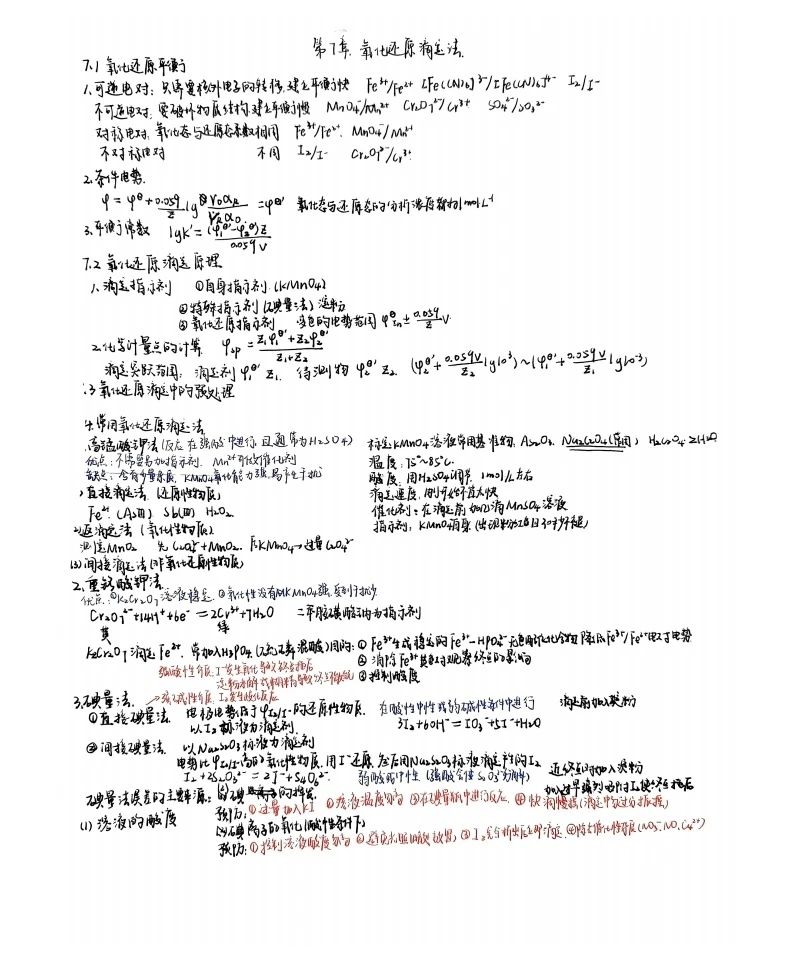 第7章 氧化还原滴定法
7.1 氧化还原平衡
1.可逆电对:只需要核外电子的转移,建立平衡快 Fe³⁺/Fe²⁺ [Fe(CN)₆]³⁻/[Fe(CN)₆]⁴⁻ I₂/I⁻
不可逆电对:要破坏物质结构,建立平衡慢 MnO₄⁻/Mn²⁺ Cr₂O₇²⁻/Cr³⁺ SO₄²⁻/SO₃²⁻
对称电对:氧化态与还原态系数相同 Fe³⁺/Fe²⁺ MnO₄⁻/Mn²⁺
不对称电对 不同 I₂/I⁻ Cr₂O₇²⁻/Cr³⁺
2.条件电势
φ = φ^θ + 0.059/z lg γ₀α_R/γ_Rα₀ = φ^θ′ 氧化态与还原态的分析浓度都为1mol·L⁻¹
3.平衡常数 lgK′ = (φ₁^θ′ - φ₂^θ′)z/0.059V
7.2 氧化还原滴定原理
1.滴定指示剂 ①自身指示剂 (KMnO₄)
②特殊指示剂 (碘量法) 淀粉
③氧化还原指示剂 变色的电势范围 φ^θ_In ± 0.059/z V
2.化学计量点的计算 φsp = z₁φ₁^θ′+z₂φ₂^θ′/z₁+z₂
滴定突跃范围:滴定剂φ₁^θ′ z₁ 待测物φ₂^θ′ z₂ (φ₂^θ′ + 0.059V/z₂ lg10³) ~ (φ₁^θ′ + 0.059V/z₁ lg10⁻³)
.3 氧化还原滴定中的预处理
4.常用氧化还原滴定法
高锰酸钾法 (反应在强酸中进行,且通常为H₂SO₄)
优点:不需要另加指示剂,Mn²⁺可作催化剂
缺点:含有少量杂质,KMnO₄氧化能力强,易产生干扰
)直接滴定法 (还原性物质)
Fe²⁺ (As Ⅲ) Sb(Ⅲ) H₂O₂
2)返滴定法 (氧化性物质)
测定MnO₂ 先C₂O₄²⁻+MnO₂ 后KMnO₄→过量C₂O₄²⁻
(3)间接滴定法 (非氧化还原性物质)
标定KMnO₄溶液常用基准物:As₂O₃、Na₂C₂O₄(常用) H₂C₂O₄·2H₂O
温度:75℃~85℃
酸度:用H₂SO₄调节 1mol/L左右
滴定速度:刚开始不宜太快
催化剂:在滴定前加几滴MnSO₄溶液
指示剂:KMnO₄自身
2.重铬酸钾法
优点:①K₂Cr₂O₇溶液稳定 ②氧化性没有KMnO₄强,受到干扰少
Cr₂O₇²⁻+14H⁺+6e⁻=2Cr³⁺+7H₂O 二苯胺磺酸钠为指示剂
黄 绿
K₂Cr₂O₇滴定Fe²⁺,常加入H₃PO₄目的:①Fe³⁺生成稳定的Fe³⁺-HPO₄²⁻无色的配合物 降低Fe³⁺/Fe²⁺电对电势
②消除Fe³⁺黄色对观察终点的影响
③控制酸度
3.碘量法
①直接碘量法 电极电势低于φI₂/I⁻的还原性物质 在酸性中性或弱碱性条件中进行 滴定前加入淀粉
以I₂标液为滴定剂 3I₂+6OH⁻=IO₃⁻+5I⁻+H₂O
②间接碘量法 以Na₂S₂O₃标液为滴定剂
电势比φI₂/I⁻高的氧化性物质,用I⁻还原,然后用Na₂S₂O₃标液滴定产生的I₂ 近终点时加入淀粉
I₂+2S₂O₃²⁻=2I⁻+S₄O₆²⁻ 弱酸或中性
碘量法误差的主要来源:(1)碘的挥发
(1)溶液的酸度 预防:①过量加入KI ②溶液温度勿高 ③在碘量瓶中进行反应 ④快滴慢摇
(2)碘离子的氧化(酸性条件下)
预防:①控制溶液酸度勿高 ②避免光照 ③I₂完全析出后立即滴定 ④除去催化性杂质(NO₂⁻,NO,Cu²⁺)